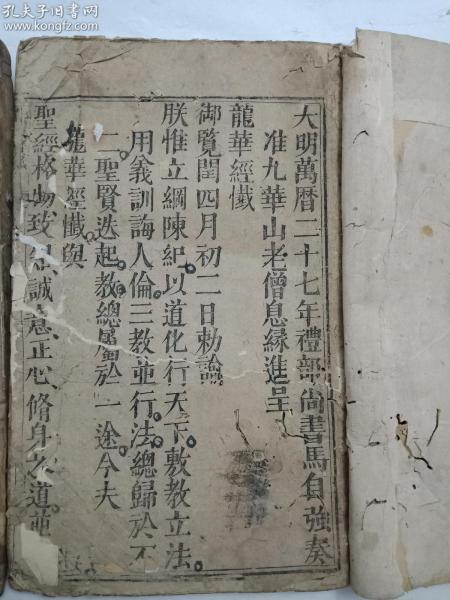 大明萬曆二十七年禮部尚書馬自強奏
准九華山老僧息緣進呈
龍華經懺
御覽閏四月初二日勅諭
朕惟立綱陳紀以道化行天下敷教立法
用義訓誨人倫三教並行法總歸於不
二聖賢迭起教總屬於一途今夫
龍華經懺與
聖經格物致知誠意正心脩身之道並
孔夫子旧书网
www.kongfz.com